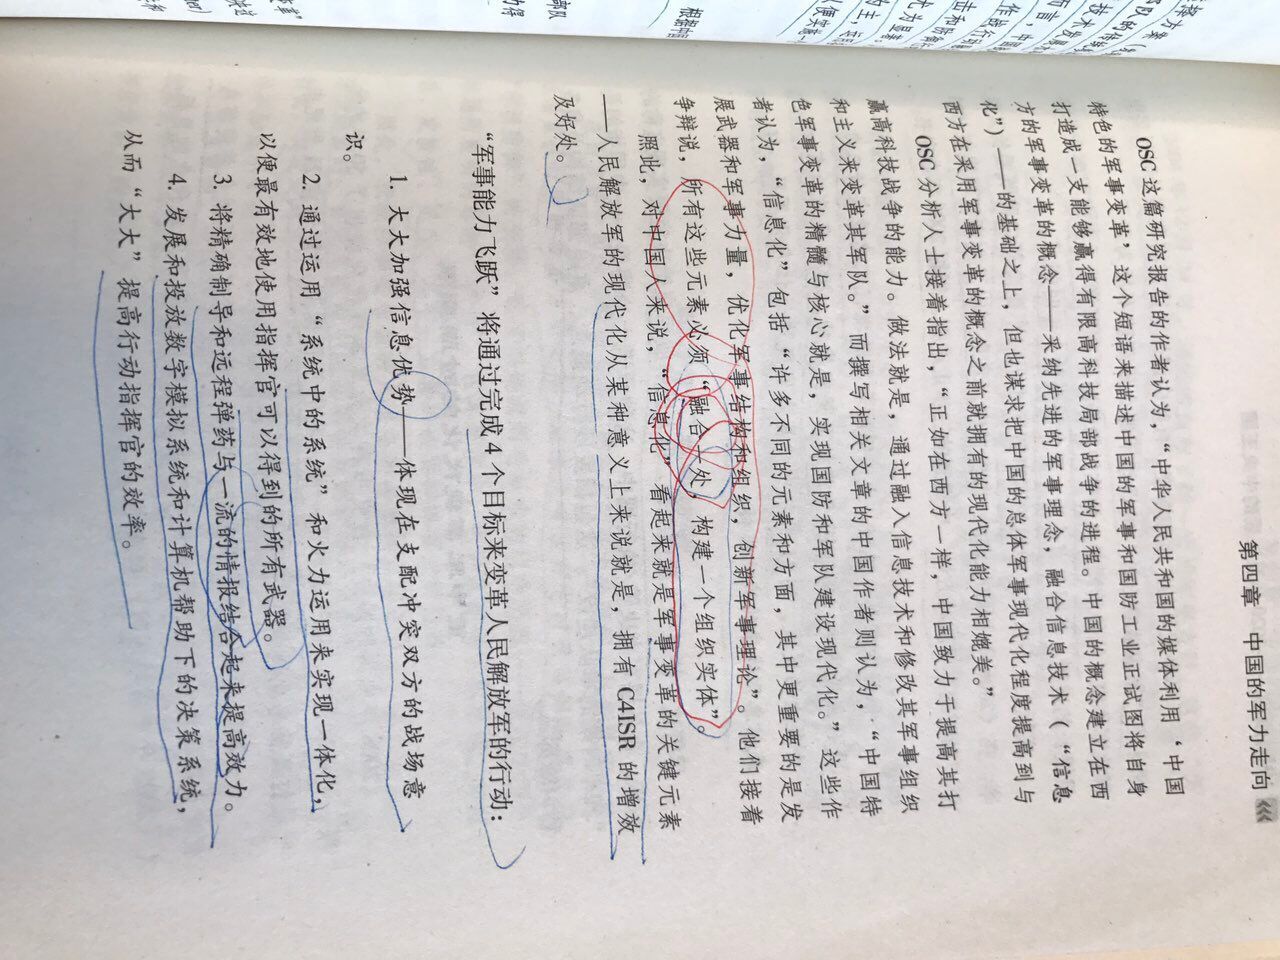 第四章 中国的军力走向
OSC 这篇研究报告的作者认为，“中华人民共和国的媒体利用‘中国
特色的军事变革’这个短语来描述中国的军事和国防工业正试图将自身
打造成一支能够赢得有限高科技局部战争的进程。中国的概念建立在西
方的军事变革的概念——采纳先进的军事理念，融合信息技术（“信息
化”）——的基础之上，但也谋求把中国的总体军事现代化程度提高到与
西方在采用军事变革的概念之前就拥有的现代化能力相媲美。”
OSC 分析人士接着指出，“正如在西方一样，中国致力于提高其打
赢高科技战争的能力。做法就是，通过融入信息技术和修改其军事组织
和主义来变革其军队。”而撰写相关文章的中国作者则认为，“中国特
色军事变革的精髓与核心就是，实现国防和军队建设现代化。”这些作
者认为，“信息化”包括“许多不同的元素和方面，其中更重要的是发
展武器和军事力量，优化军事结构和组织，创新军事理论”。他们接着
争辩说，所有这些元素必须“融合一处，构建一个组织实体”。
照此，对中国人来说，“信息化”看起来就是军事变革的关键元素
——人民解放军的现代化从某种意义上来说就是，拥有 C4ISR 的增效
及好处。
“军事能力飞跃”将通过完成 4 个目标来变革人民解放军的行动：
1. 大大加强信息优势——体现在支配冲突双方的战场意
识。
2. 通过运用“系统中的系统”和火力运用来实现一体化，
以便最有效地使用指挥官可以得到的所有武器。
3. 将精确制导和远程弹药与一流的情报结合起来提高效力。
4. 发展和投放数字模拟系统和计算机帮助下的决策系统，
从而“大大”提高行动指挥官的效率。